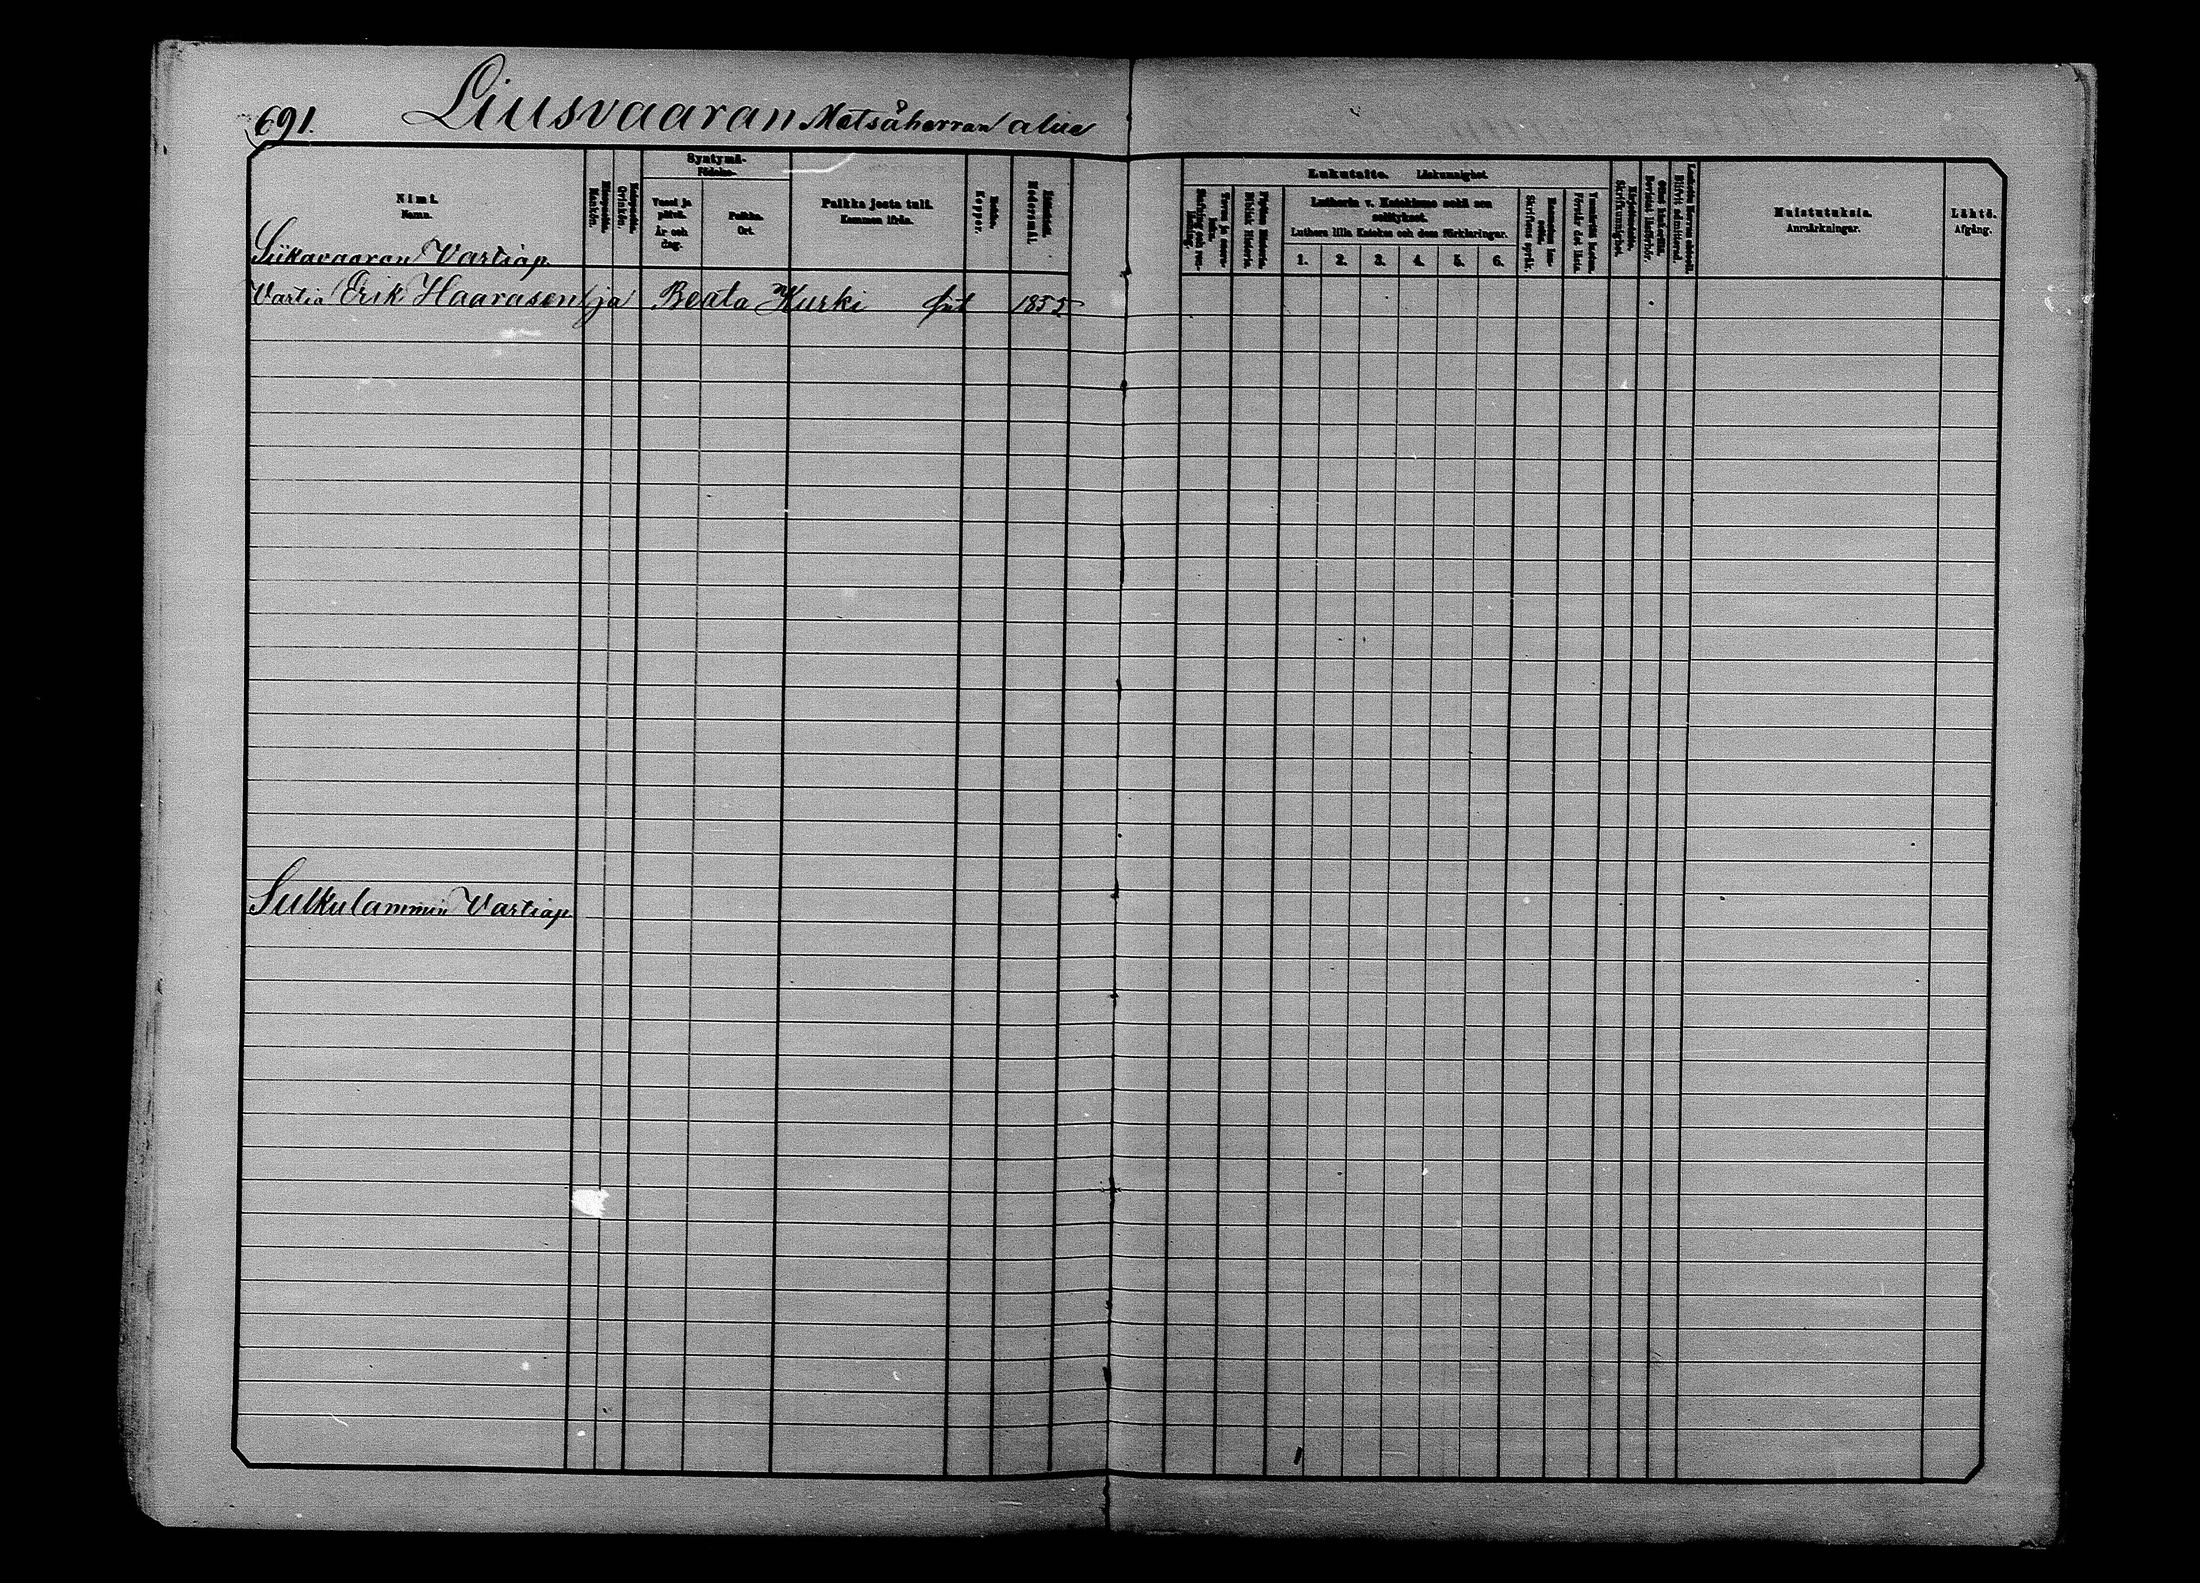 691. Liusvaaran Metsåherran alue
Syntymä-
Födelse-
Nimi.
Namn.
Vuosi ja päivä.
År och dag.
Paikka.
Ort.
Paikka josta tuli.
Kommen ifrån.
Rokko.
Koppor.
Modersmål.
Siikavaaran Vartiap.
Vartia Erik Haarasen ja Beata Kurki 1855
Sulkulammin Vartiap.
Lukutaito. Läskunnighet.
Lutherin v. Katekismo sekä sen selitykset.
Luthers lilla Katekes och dess förklaringar.
1. 2. 3. 4. 5. 6.
Skriftens språk.
Förstår det lästa.
Skrifkunnighet.
Muistutuksia.
Anmärkningar.
Lähtö.
Afgång.